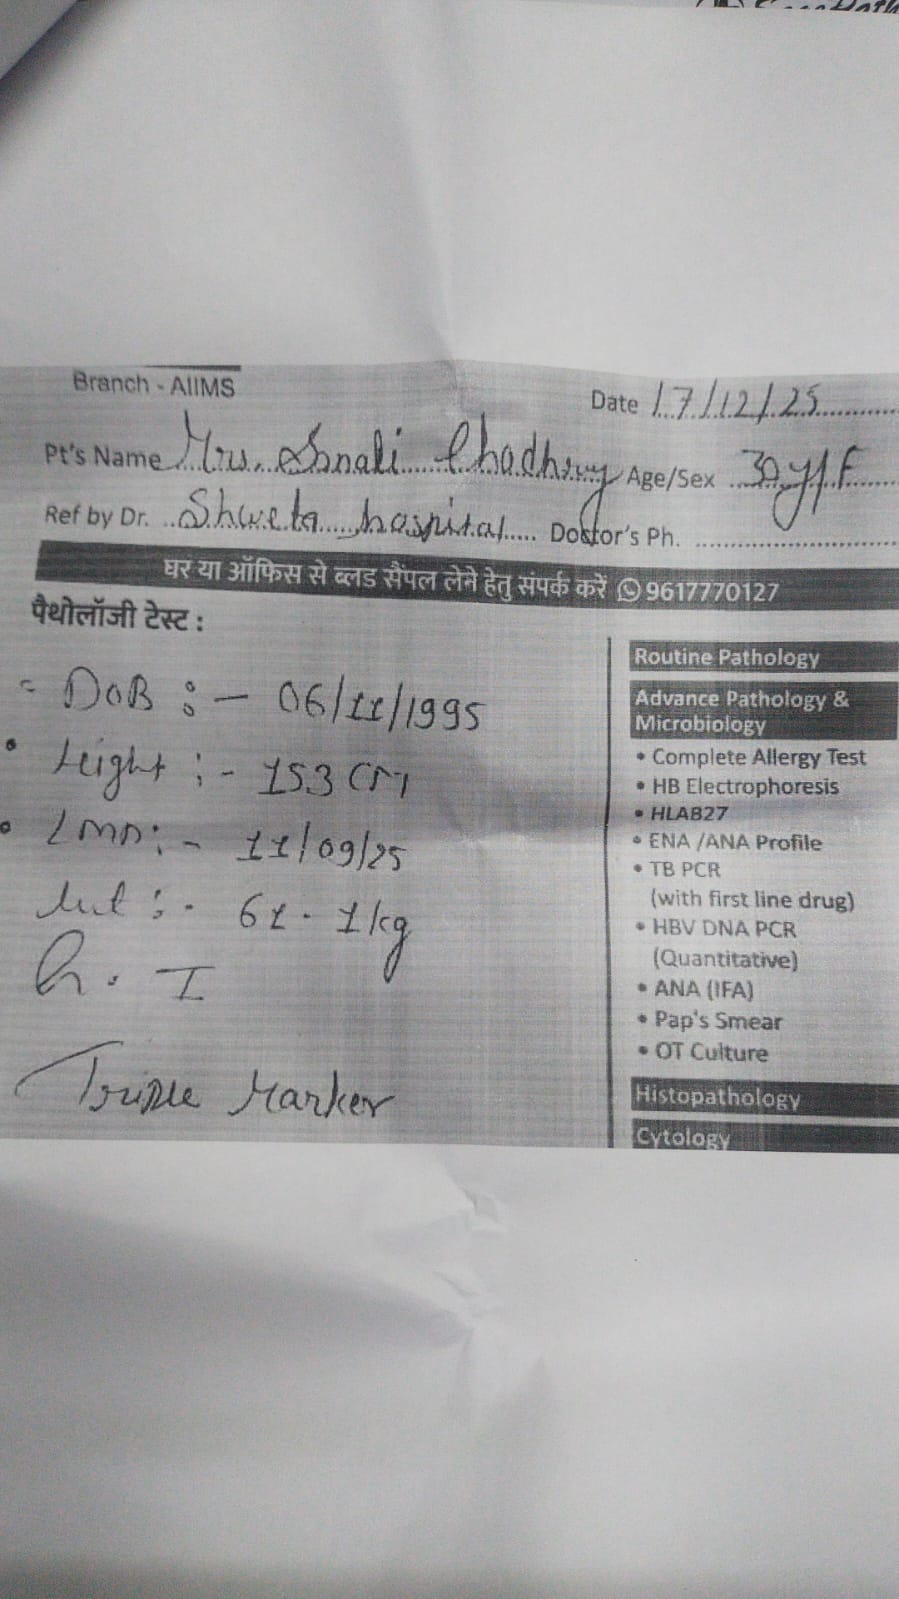 Branch - AIIMS
Date 17/12/25
Pt's Name Mrs. Sonali Chadhry Age/Sex 30 y/F
Ref by Dr. Shweta hospital Doctor's Ph.
घर या ऑफिस से ब्लड सैंपल लेने हेतु संपर्क करें 9617770127
पैथोलॉजी टेस्ट :
DOB :- 06/11/1995
Height :- 153 cm
LMP :- 11/09/25
wt :- 61.1kg
G. I
Triple Marker
Routine Pathology
Advance Pathology &
Microbiology
• Complete Allergy Test
• HB Electrophoresis
• HLAB27
• ENA /ANA Profile
• TB PCR
(with first line drug)
• HBV DNA PCR
(Quantitative)
• ANA (IFA)
• Pap's Smear
• OT Culture
Histopathology
Cytology